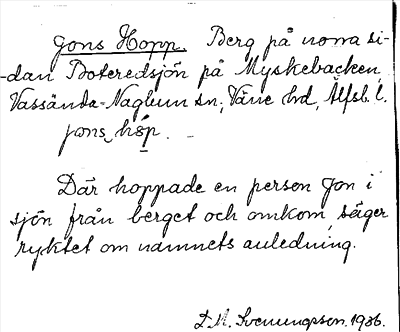 Jons Hopp. Berg på norra si-
-dan Boteredsjön på Myskebacken
Vassända-Naglum sn; Väne hd, Älfsb. l.
jons hóp.
Där hoppade en person Jon i
sjön från berget och omkom, säger
ryktet om namnets anledning.
D.M. Svenungsson. 1936.